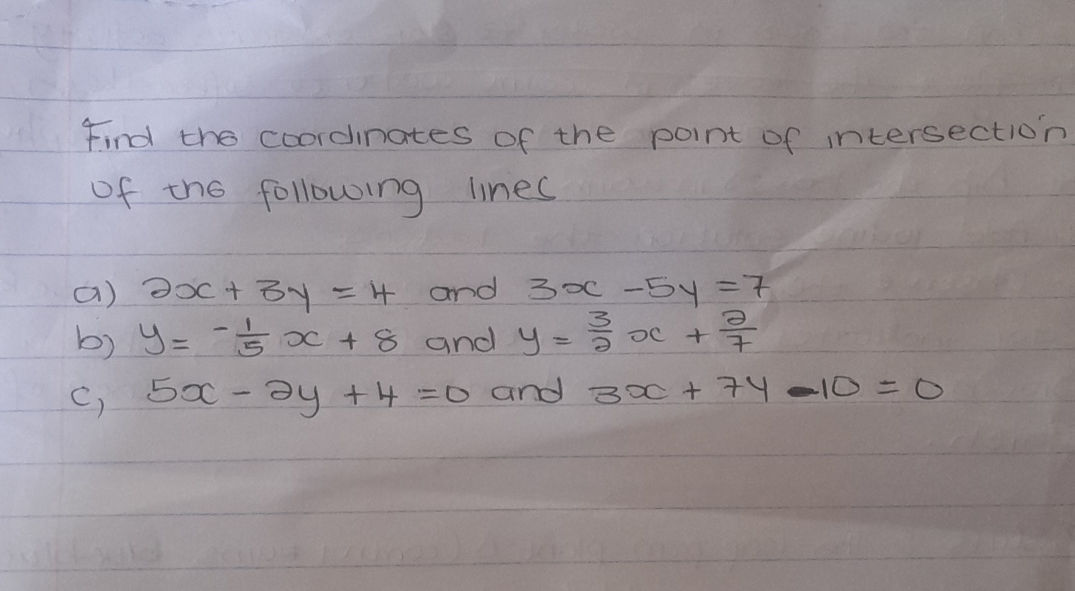 Find the coordinates of the point of intersection
of the following lines
a) 2x + 3y = 4 and 3x - 5y = 7
b) y = -1/5 x + 8 and y = 3/2 x + 2/7
c, 5x - 2y + 4 = 0 and 3x + 7y - 10 = 0